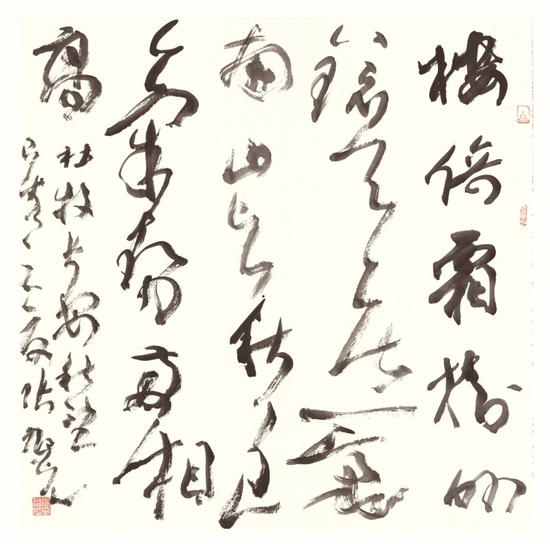 樓倚霜樹外
鏡天無一毫
南山与秋色
氣勢兩相
高
杜牧長安秋望
張旭光